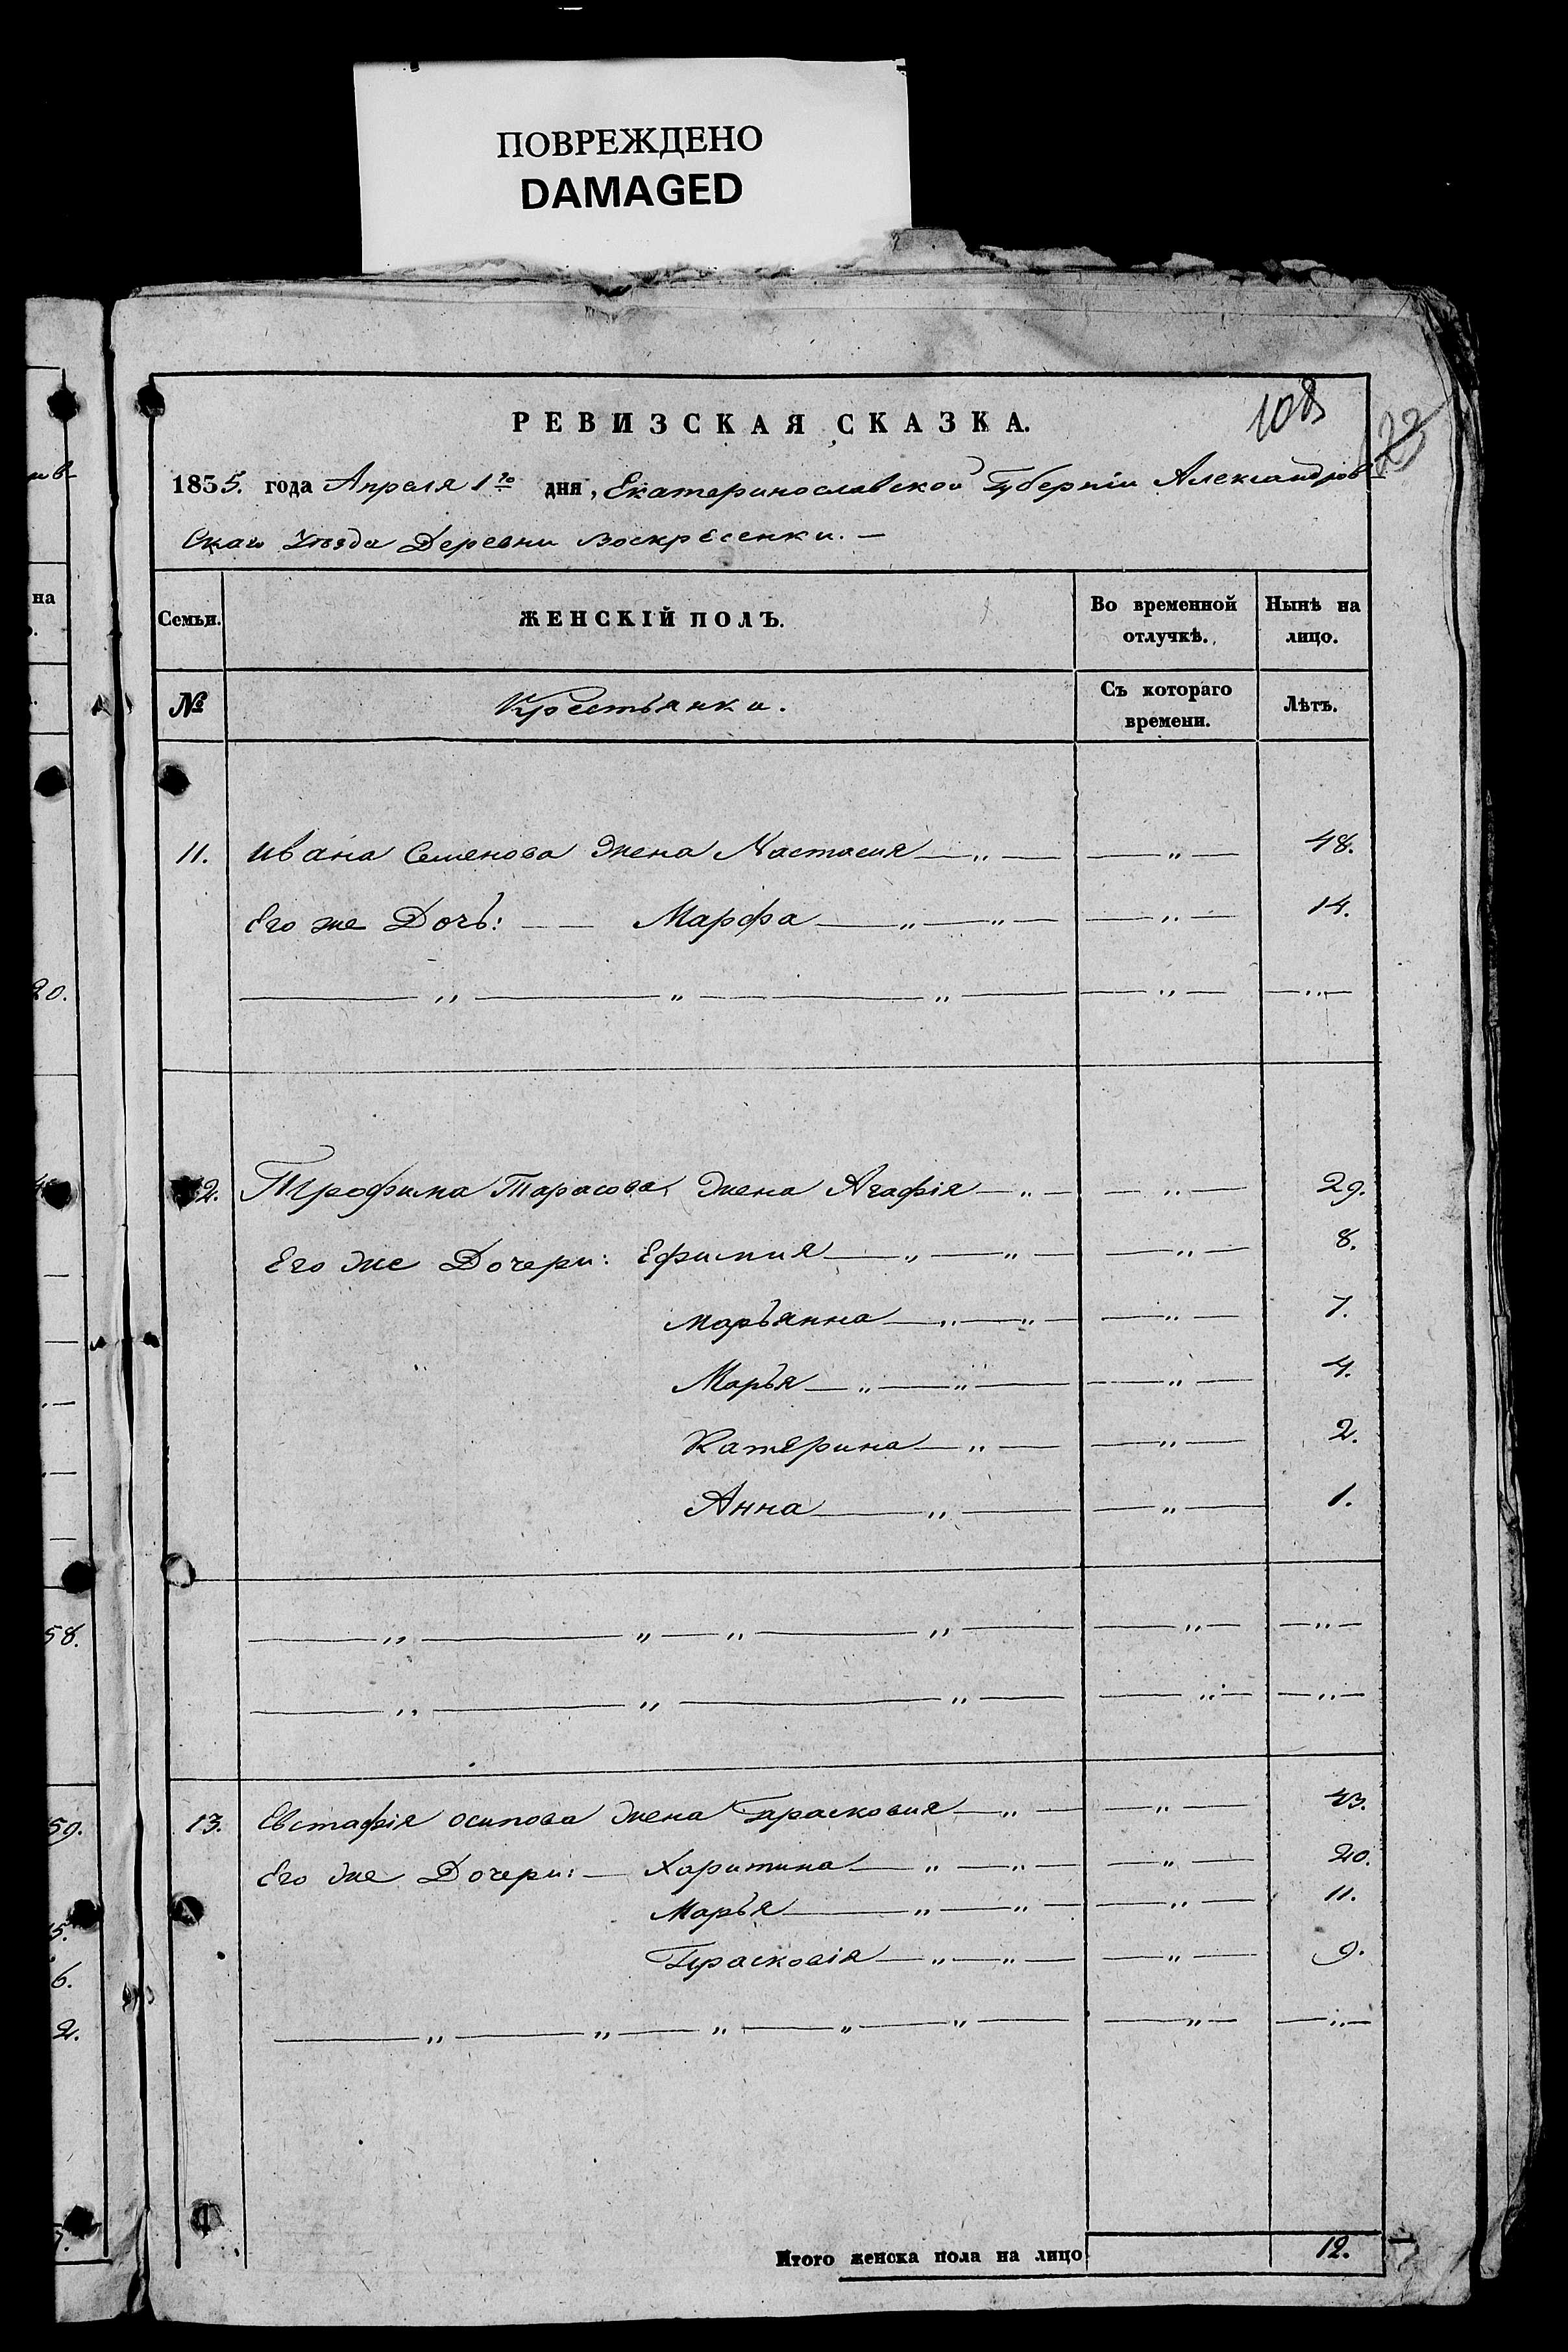 ПОВРЕЖДЕНО
DAMAGED
РЕВИЗСКАЯ СКАЗКА.
108
23
1835. года Апреля 1го дня, Екатеринославской Губерніи Александров
скаго Уѣзда Деревни Воскресенки. —
Семьи. ЖЕНСКІЙ ПОЛЪ. Во временной отлучкѣ. Нынѣ на лицо.
№ Крестьянки. Съ котораго времени. Лѣтъ.
11. Ивана Семенова жена Настасия — „ — — „ — 48.
Его же Дочь: — — Марфа — „ — „ — — „ — 14.
— „ — „ — „ — — „ — — „ —
12. Трофима Тарасова жена Агафія — „ — — „ — 29.
Его же Дочери: Ефимия — „ — „ — — „ — 8.
Марьянна — „ — „ — — „ — 7.
Марья — „ — „ — — „ — 4.
Катерина — „ — — „ — 2.
Анна — „ — — „ — 1.
— „ — „ — „ — „ — — „ — — „ —
— „ — „ — „ — — „ — — „ —
13. Евстафія Осипова жена Прасковия — „ — — „ — 43.
Его же Дочери: — Харитина — „ — „ — — „ — 20.
Марья — „ — „ — — „ — 11.
Прасковія — „ — „ — — „ — 9.
— „ — „ — „ — „ — „ — — „ — — „ —
Итого женска пола на лицо 12.